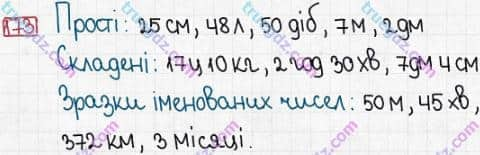 173 Прості: 25 см, 48 л, 50 діб, 7 м, 2 дм
Складені: 17 ц 10 кг, 2 год 30 хв, 7 дм 4 см
Зразки іменованих чисел: 50 м, 45 хв,
372 км, 3 місяці.